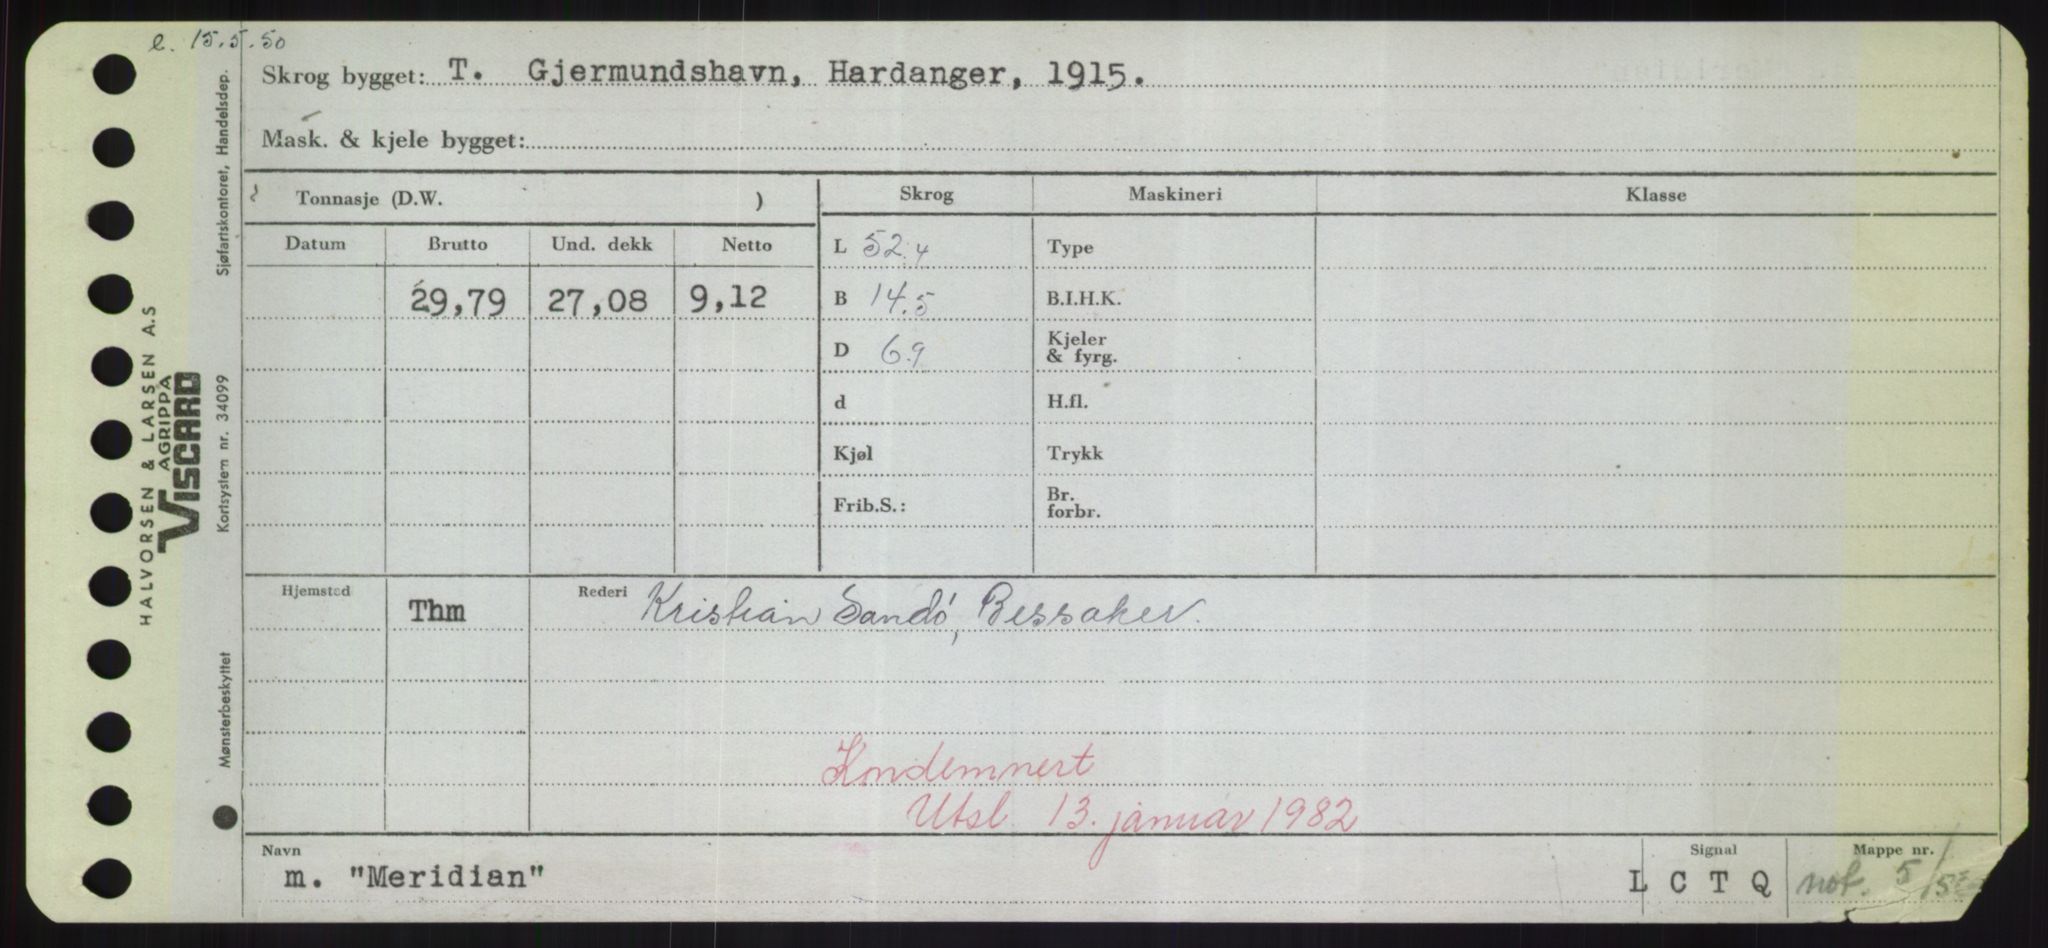 e. 15.5.50
Skrog bygget: T. Gjermundshavn, Hardanger, 1915.
Mask. & kjele bygget:
Tonnasje (D.W. )
Skrog Maskineri Klasse
Datum Brutto Und. dekk Netto
29,79 27,08 9,12
L 52.4 Type
B 14.5 B.I.H.K.
D 6.9 Kjeler & fyrg.
d H.fl.
Kjøl Trykk
Frib.S.: Br. forbr.
Hjemsted Thm Rederi Kristian Sandö, Bessaker.
Kondemnert
Utsl. 13. januar 1982
Navn Signal Mappe nr.
m. "Meridian" L C T Q not. 5/
HALVORSEN & LARSEN A.S
AGRIPPA
VISCARD
Sjøfartskontoret, Handelsdep.
Kortsystem nr. 34099
Mønsterbeskyttet